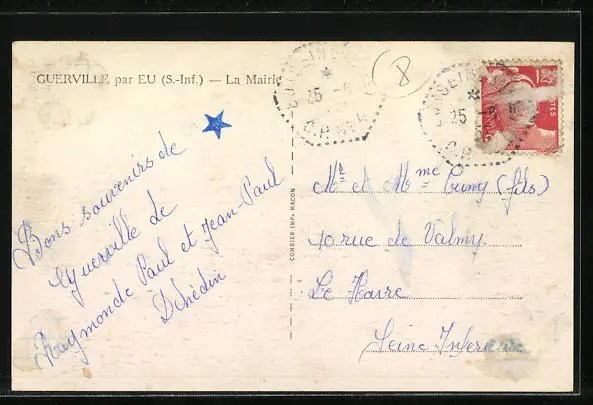 GUERVILLE par EU (S.-Inf.) — La Mairie
8
25
25
Bons souvenirs de
Guerville de
Raymonde Paul et Jean-Paul
Dehédin
COMBIER IMP. MACON
Mr et Mme Cuny (fils)
10 rue de Valmy
Le Havre
Seine Inferieure